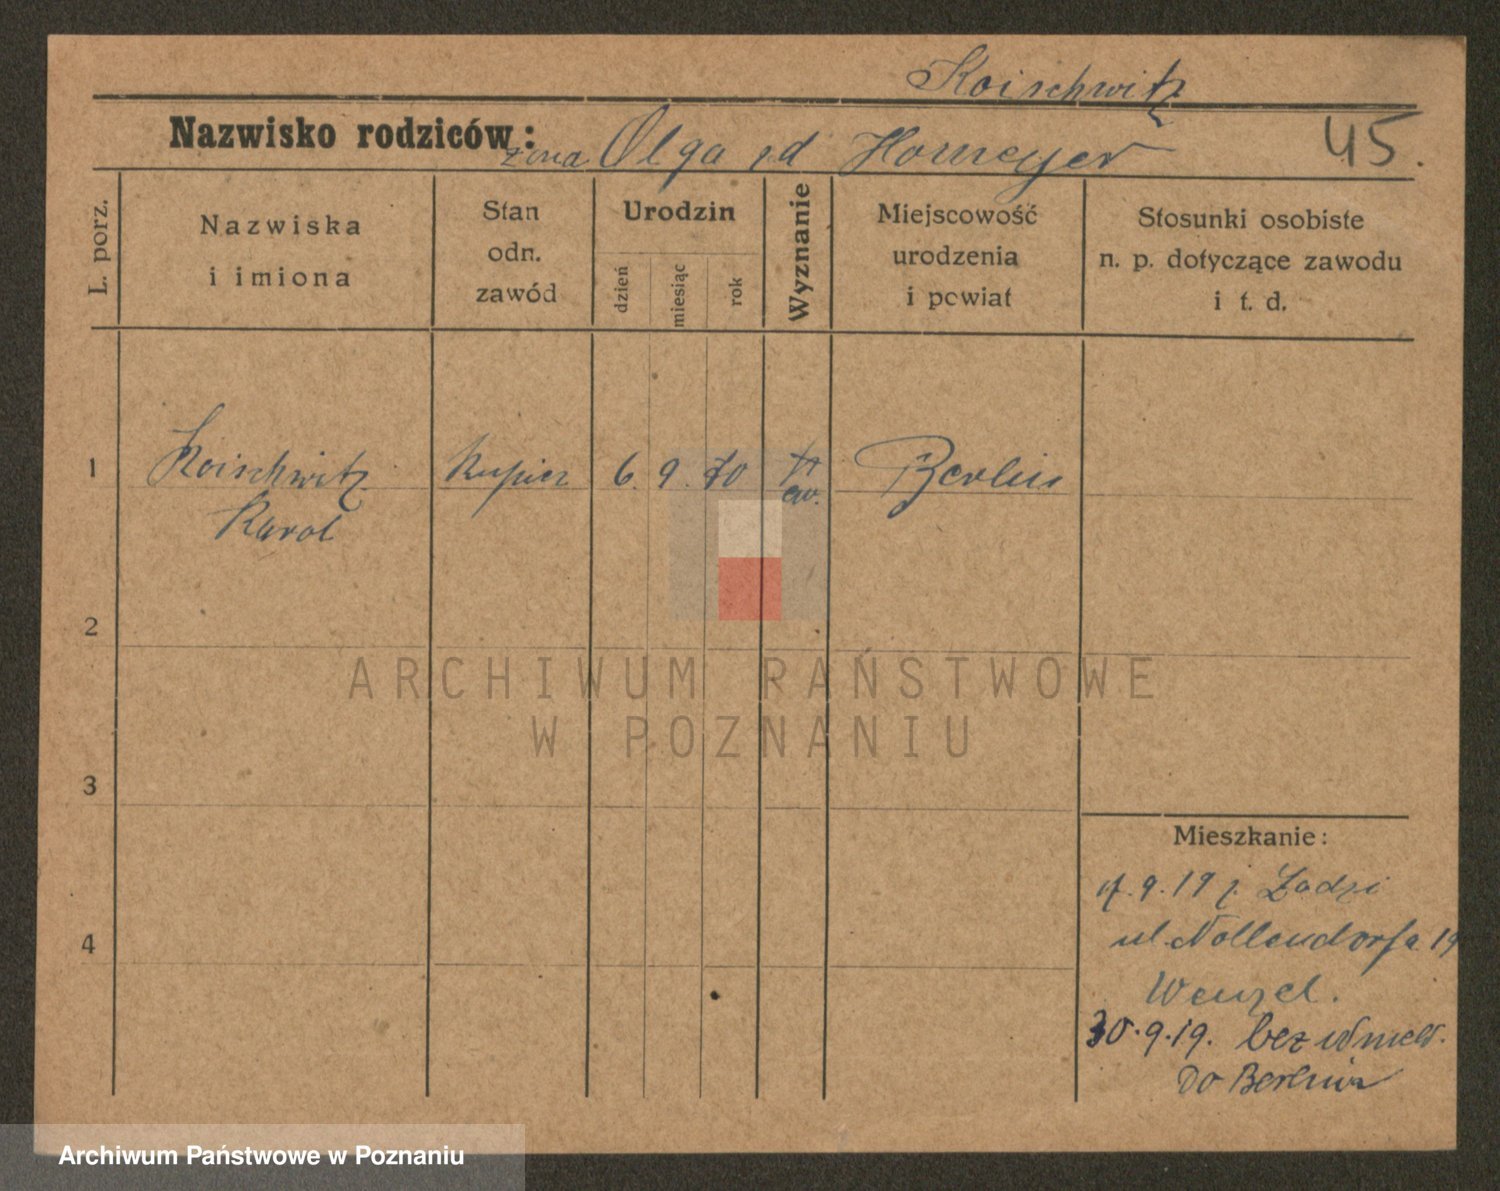 Koischwitz
Nazwisko rodziców:
żona Olga Homeyer
45.
L. porz.
Nazwiska
i imiona
Stan
odn.
zawód
Urodzin
dzień
miesiąc
rok
Wyznanie
Miejscowość
urodzenia
i powiat
Stosunki osobiste
n. p. dotyczące zawodu
i t. d.
1
Koischwitz
Karol
Kupiec
6. 9. 70
ew.
Berlin
2
3
4
Mieszkanie:
9.19 z Łodzi
ul. Nollendorfa 19
Wenzel.
30.9.19. bez
do Berlina
ARCHIWUM PAŃSTWOWE
W POZNANIU
Archiwum Państwowe w Poznaniu